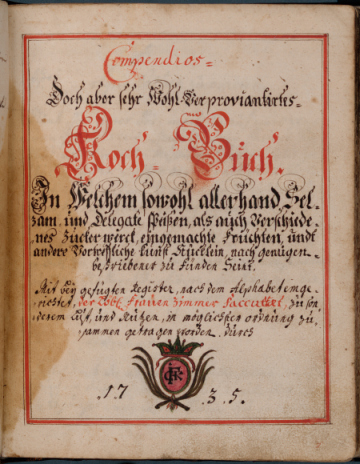 Compendios=
Doch aber sehr Wohl-Verproviantirtes=
Koch = Buch.
In Welchem sowohl allerhand Sel-
zam, und Delegate Speißen, als auch Verschiede-
nes Zucker werck, eingemachte Früchten, undt
andere Vortreffliche kunst Stücklein, nach genügen-
beschriebener zu finden Seint,
Mit bey gefügten Register, nach dem Alphabet einge
richtet, der löbl. Frauen Zimmer zu son
derem Lust, und Nutzen, in möglichster ordnung zu
sammen getragen worden.
17 35.